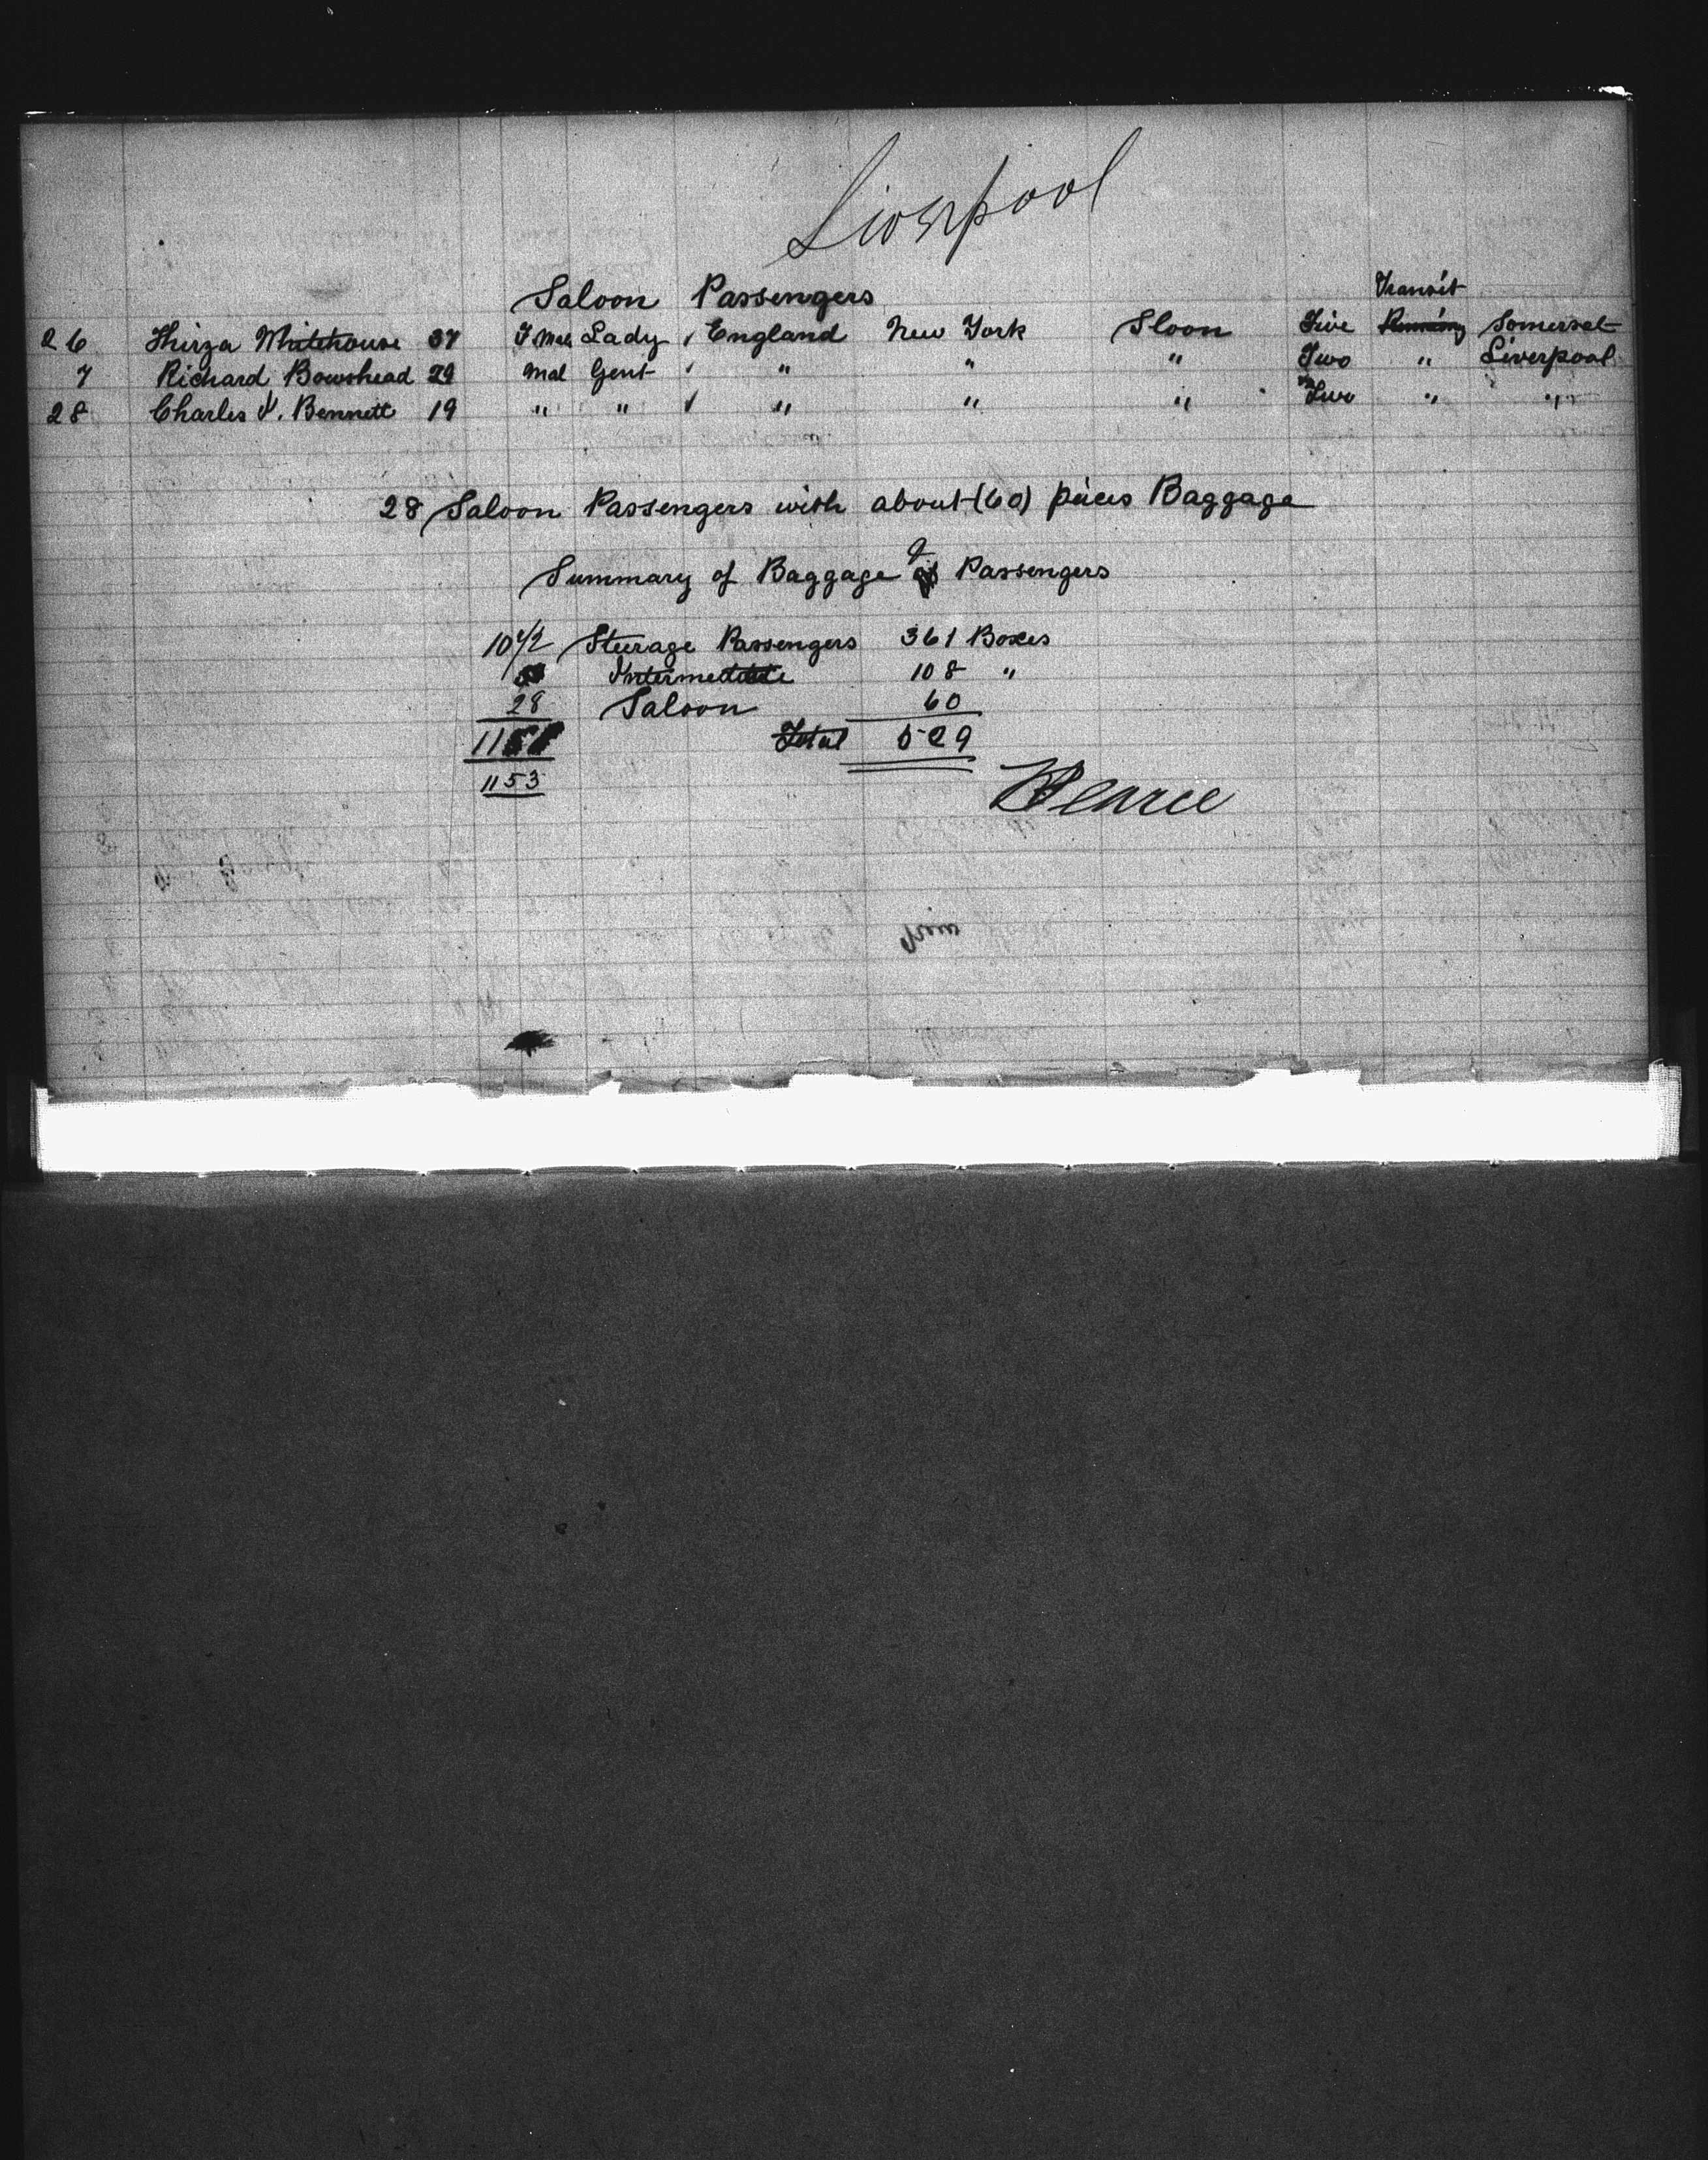 Liverpool
Saloon Passengers Transit
26 Thirza Whitehouse 37 F Mal Lady England New York Sloon Five Somerset
7 Richard Bowshead 29 Mal Gent " " " Two " Liverpool
28 Charles V. Bennett 19 " " " " " Two " "
28 Saloon Passengers with about (60) pieces Baggage
Summary of Baggage & Passengers
Steerage Passengers 361 Boxes
Intermediate 108 "
28 Saloon 60
Total 529
1153
Pearce